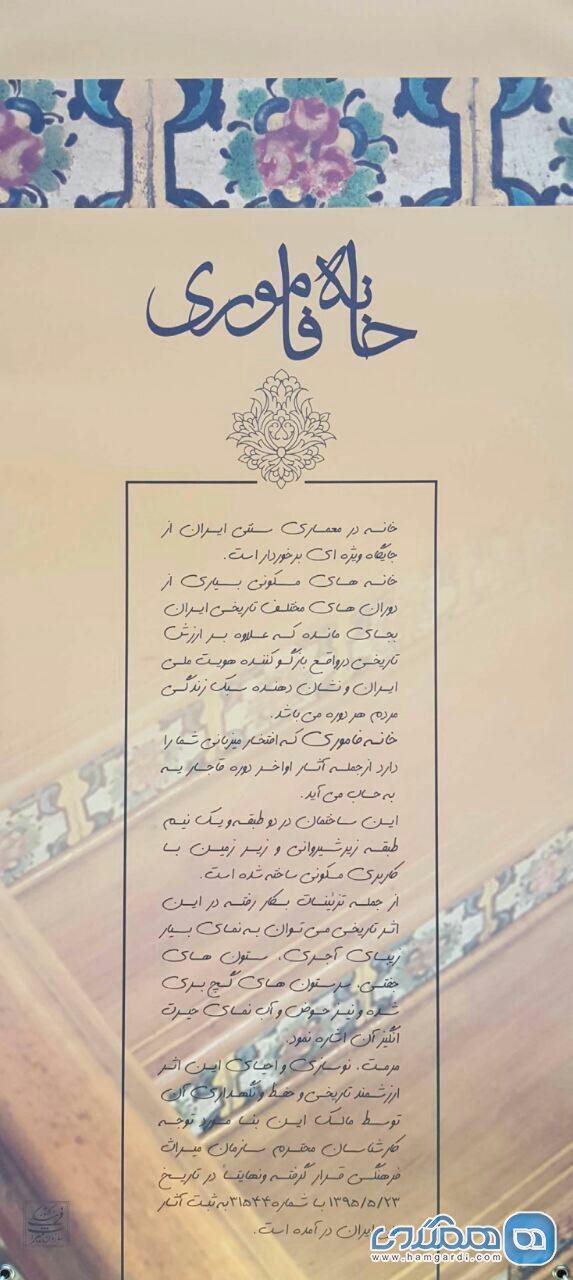 خانه فاموری
خانه در معماری سنتی ایران از
جایگاه ویژه ای برخوردار است.
خانه های مسکونی بسیاری از
دوران های مختلف تاریخی ایران
بجای مانده که علاوه بر ارزش
تاریخی درواقع بازگو کننده هویت ملی
ایران و نشان دهنده سبک زندگی
مردم هر دوره می باشد.
خانه فاموری که افتخار میزبانی شما را
دارد از جمله آثار اواخر دوره قاجاریه
به حساب می آید.
این ساختمان در دو طبقه و یک نیم
طبقه زیرشیروانی و زیر زمین با
کاربری مسکونی ساخته شده است.
از جمله تزئینات بکار رفته در این
اثر تاریخی می توان به نمای بسیار
زیبای آجری، ستون های
جفتی، سرستون های گچ بری
شده و نیز حوض و آب نمای حیرت
انگیز آن اشاره نمود.
مرمت، نوسازی و احیای این اثر
ارزشمند تاریخی و حفظ و نگهداری آن
توسط مالک این بنا مورد توجه
کارشناسان محترم سازمان میراث
فرهنگی قرار گرفته و نهایتاً در تاریخ
۱۳۹۵/۵/۲۳ با شماره ۳۱۵۴۴ به ثبت آثار
ایران در آمده است.
همگردی
www.hamgardi.com